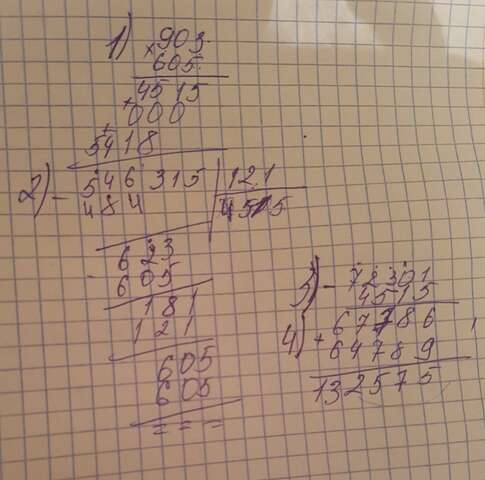 1) ×903
605
4515
+000
+
5418
2) -546315 | 121
484 4515
- 623
605
181
121
605
605
= = =
3) - 72301
4515
67786
4) + 64789
132575